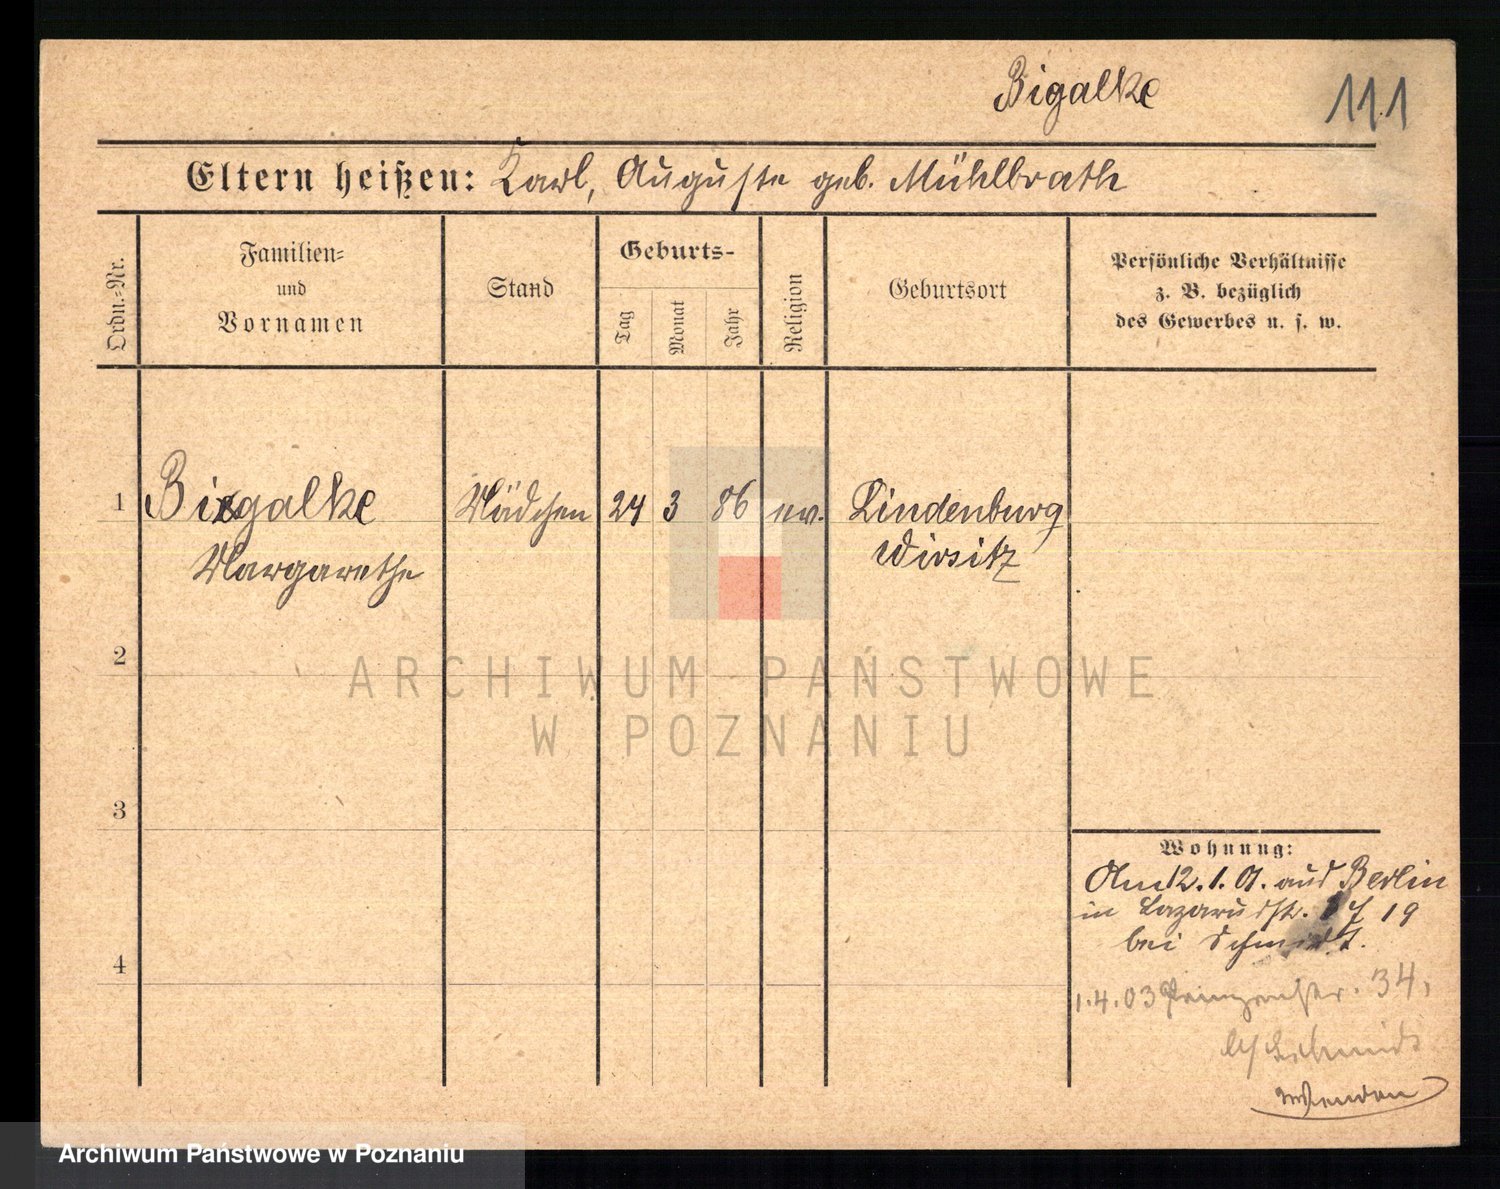 Bigalke
111
Eltern heißen: Karl, Auguste geb. Mühlbrath
Ordn.-Nr.
Familien-
und
Vornamen
Stand
Geburts-
Tag
Monat
Jahr
Religion
Geburtsort
Persönliche Verhältnisse
z. B. bezüglich
des Gewerbes u. s. w.
1
Bigalke
Margarethe
Mädchen
24
3
86
ev.
Lindenburg
Wirsitz
2
3
4
ARCHIWUM PAŃSTWOWE
W POZNANIU
Wohnung:
Am 12.1.01. aus Berlin
in Lazarusstr. 19
bei Schmidt.
1.4.03 34,
b/ Schmidt
Archiwum Państwowe w Poznaniu